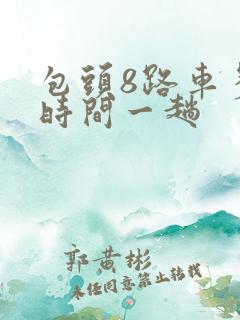 包頭8路車
時間一趟
郭黃彬
未任同意禁止转载